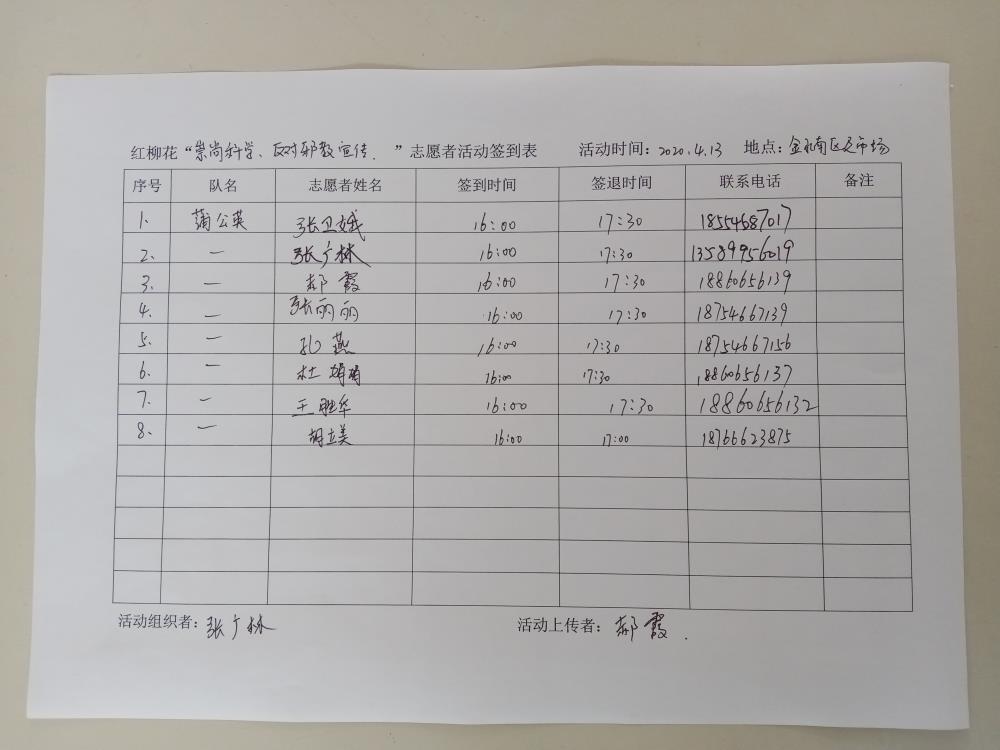 红柳花“崇尚科学、反对邪教宣传.”志愿者活动签到表 活动时间：2020.4.13 地点：金南区市场
序号 队名 志愿者姓名 签到时间 签退时间 联系电话 备注
1. 蒲公英 张卫娥 16:00 17:30 18554687017
2. 一 张广林 16:00 17:30 13589956019
3. 一 郝霞 16:00 17:30 18860656139
4. 一 张丽丽 16:00 17:30 18754667139
5. 一 孔燕 16:00 17:30 18754667156
6. 一 杜娟娟 16:00 17:30 18860656137
7. 一 王胜华 16:00 17:30 18860656132
8. 一 胡立美 16:00 17:00 18766623875
活动组织者：张广林 活动上传者：郝霞.